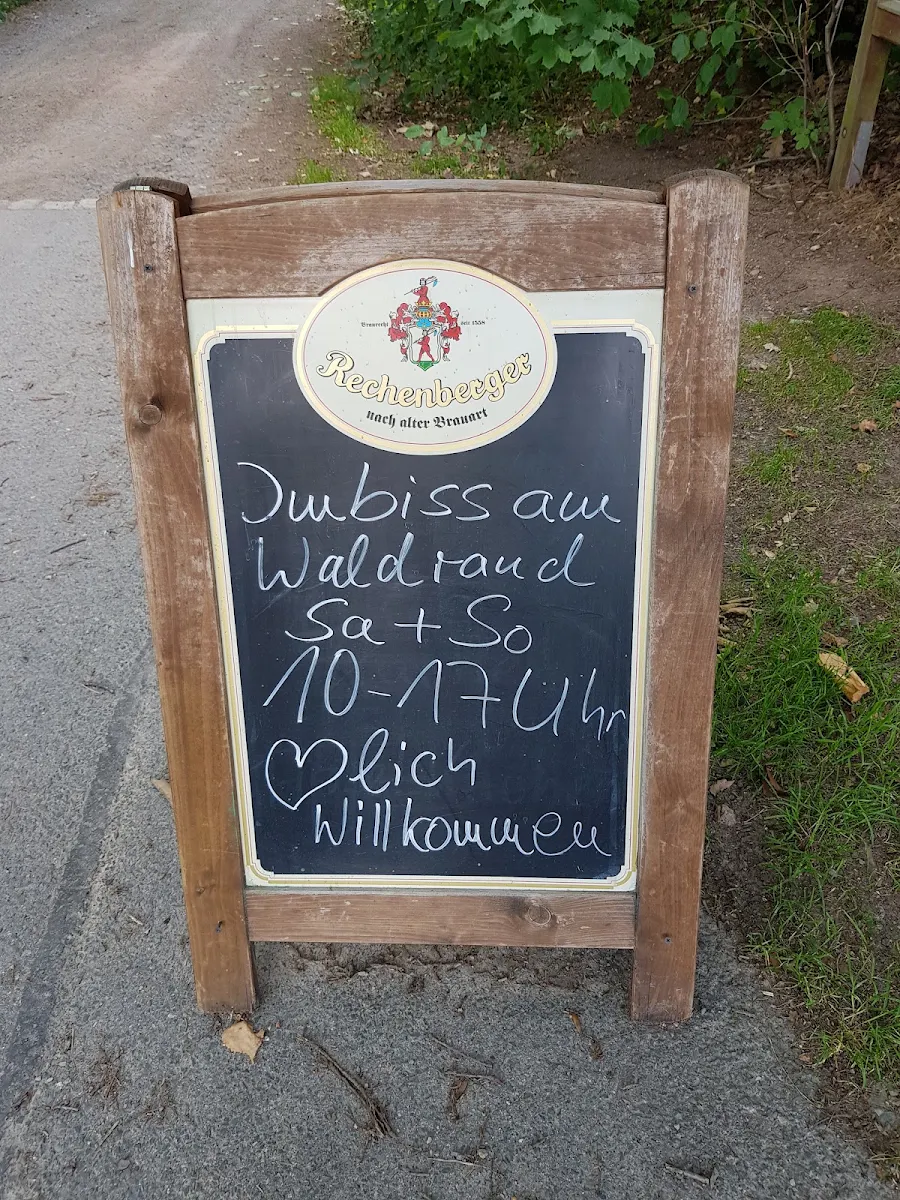 Braurecht seit 1558
Rechenberger
nach alter Brauart
Imbiss am
Waldrand
Sa + So
10-17 Uhr
♡lich
Willkommen